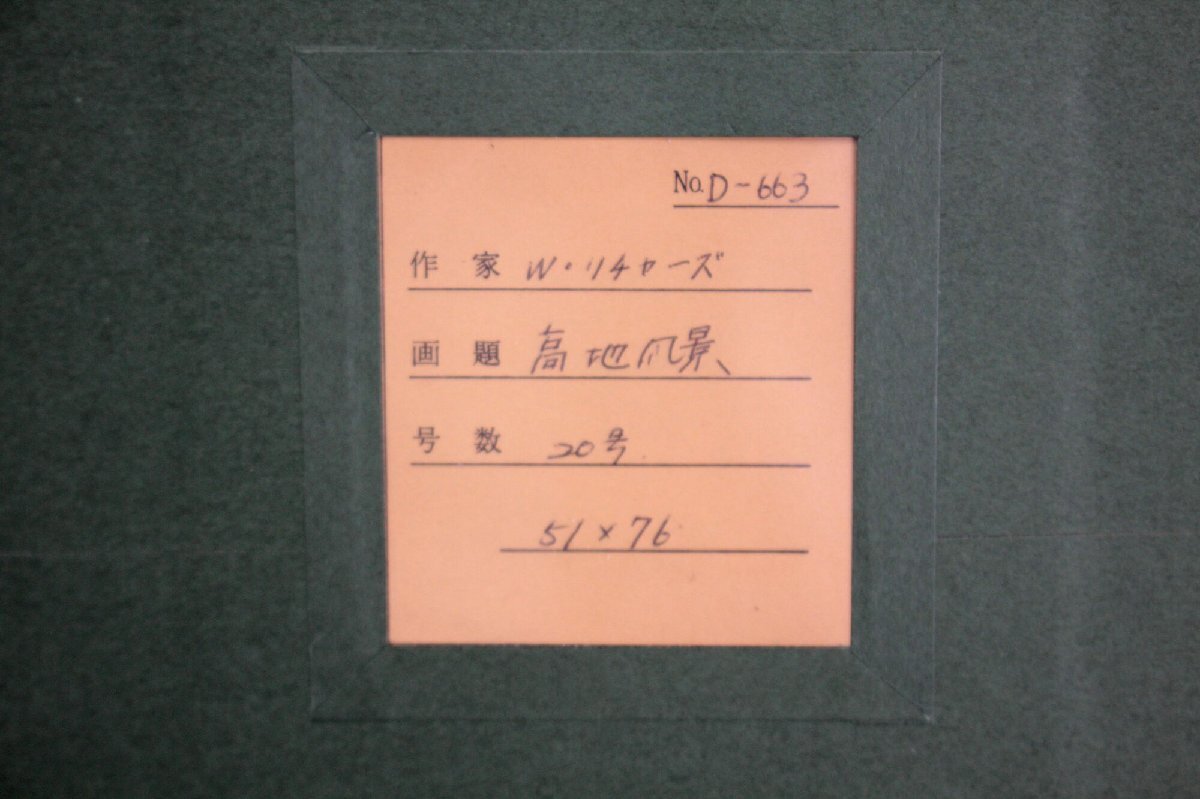 No. D-663
作家 W・リチャーズ
画題 高地风景、
号数 20号
51×76